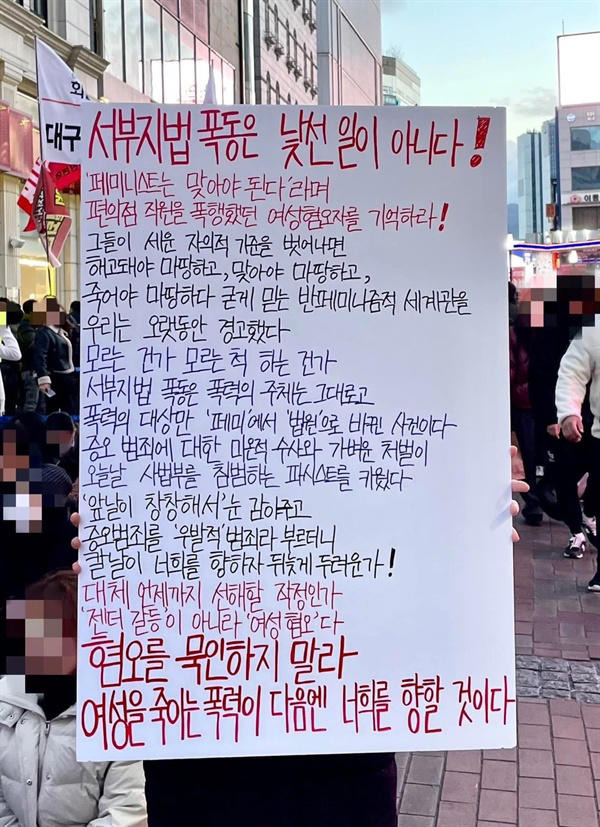 화
대구
서부지법 폭동은 낯선 일이 아니다!
'페미니스트는 맞아야 된다'라며
편의점 직원을 폭행했던 여성혐오자를 기억하라!
그들이 세운 자의적 기준을 벗어나면
해고돼야 마땅하고, 맞아야 마땅하고,
죽어야 마땅하다 굳게 믿는 반페미니즘적 세계관을
우리는 오랫동안 경고했다
모르는 건가 모르는 척 하는 건가
서부지법 폭동은 폭력의 주체는 그대로고
폭력의 대상만 '페미'에서 '법원'으로 바뀐 사건이다
증오 범죄에 대한 미온적 수사와 가벼운 처벌이
오늘날 사법부를 침범하는 파시스트를 키웠다
'앞날이 창창해서' 눈 감아주고
증오범죄를 '우발적' 범죄라 부르더니
칼날이 너희를 향하자 뒤늦게 두려운가!
대체 언제까지 선해할 작정인가
'젠더 갈등'이 아니라 '여성혐오'다
혐오를 묵인하지 말라
여성을 죽이는 폭력이 다음엔 너희를 향할 것이다